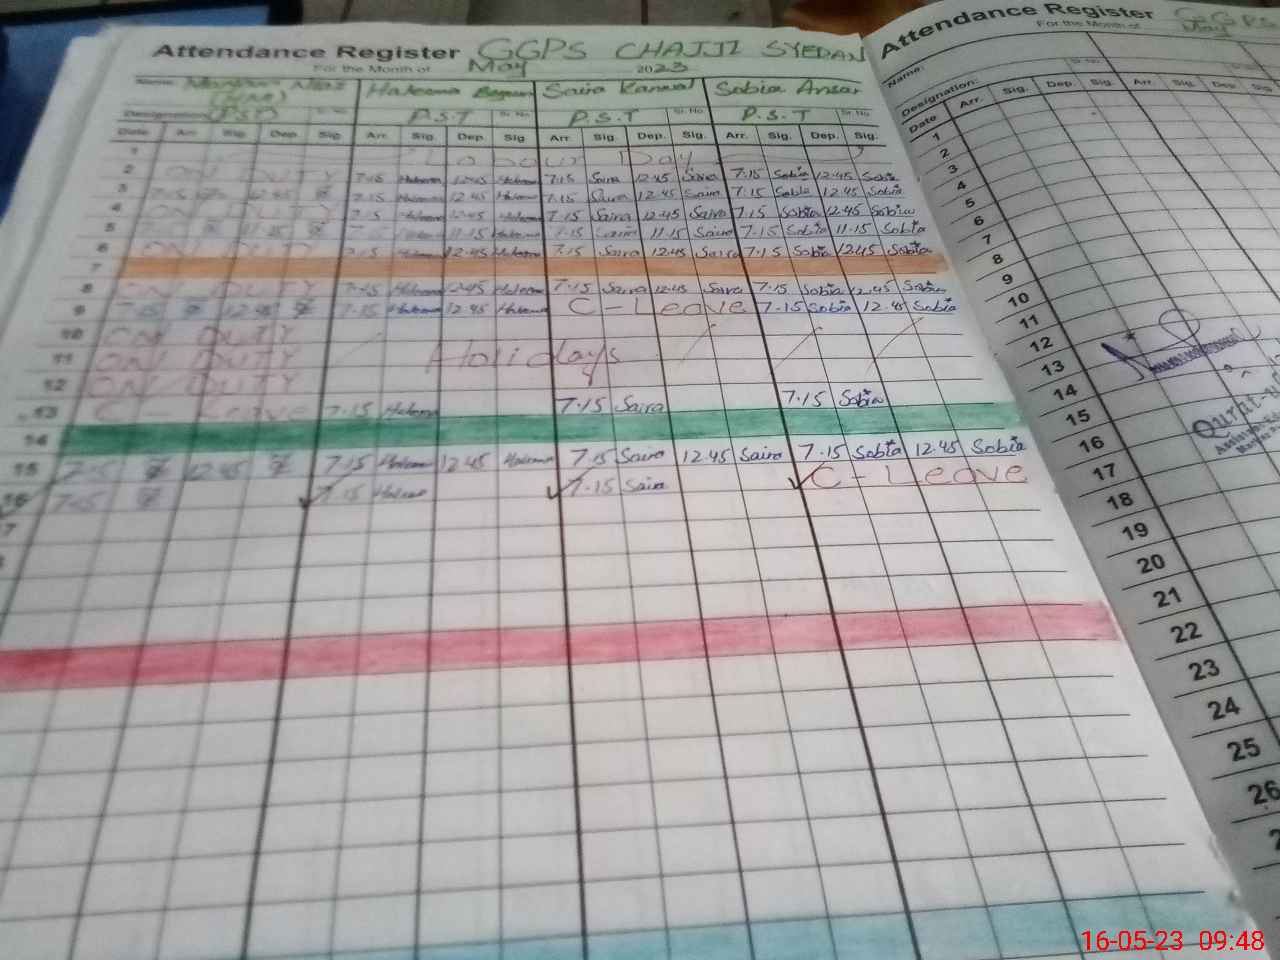 Attendance Register GGPS CHAJJI SYEDAN
For the Month of May 2023
Name: Haleema Begum Saira Kanwal Sobia Ansar
Designation: P.S.T Sr. No. P.S.T Sr. No. P.S.T Sr. No.
Date Arr. Sig. Dep. Sig. Arr. Sig. Dep. Sig. Arr. Sig. Dep. Sig. Arr. Sig. Dep. Sig.
1 Labour Day
2 ON DUTY 7.15 Haleema 12.45 Haleema 7.15 Saira 12.45 Saira 7.15 Sobia 12.45 Sobia
3 12.45 7.15 Haleema 12.45 Haleema 7.15 Saira 12.45 Saira 7.15 Sobia 12.45 Sobia
4 ON DUTY 7.15 Haleema 12.45 Haleema 7.15 Saira 12.45 Saira 7.15 Sobia 12.45 Sobia
5 11.15 7.15 Haleema 11.15 Haleema 7.15 Saira 11.15 Saira 7.15 Sobia 11.15 Sobia
6 ON DUTY 7.15 Haleema 12.45 Haleema 7.15 Saira 12.45 Saira 7.15 Sobia 12.45 Sobia
7
8 ON DUTY 7.15 Haleema 12.45 Haleema 7.15 Saira 12.45 Saira 7.15 Sobia 12.45 Sobia
9 7.15 12.45 7.15 Haleema 12.45 Haleema C - Leave 7.15 Sobia 12.45 Sobia
10 ON DUTY
11 ON DUTY Holidays
12 ON DUTY
13 C Leave 7.15 Haleema 7.15 Saira 7.15 Sobia
14
15 7.15 12.45 7.15 Haleema 12.45 Haleema 7.15 Saira 12.45 Saira 7.15 Sobia 12.45 Sobia
16 7.15 7.15 Haleema 7.15 Saira C - Leave
7
Attendance Register GGPS
For the Month of May
Name: Sr. No.
Designation:
Date Arr. Sig. Dep. Sig. Arr. Sig. Dep. Sig.
1
2
3
4
5
6
7
8
9
10
11
12
13
14
15
16
17
18
19
20
21
22
23
24
25
26
2
16-05-23 09:48